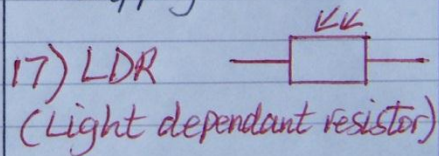 17) LDR
(Light dependant resistor)